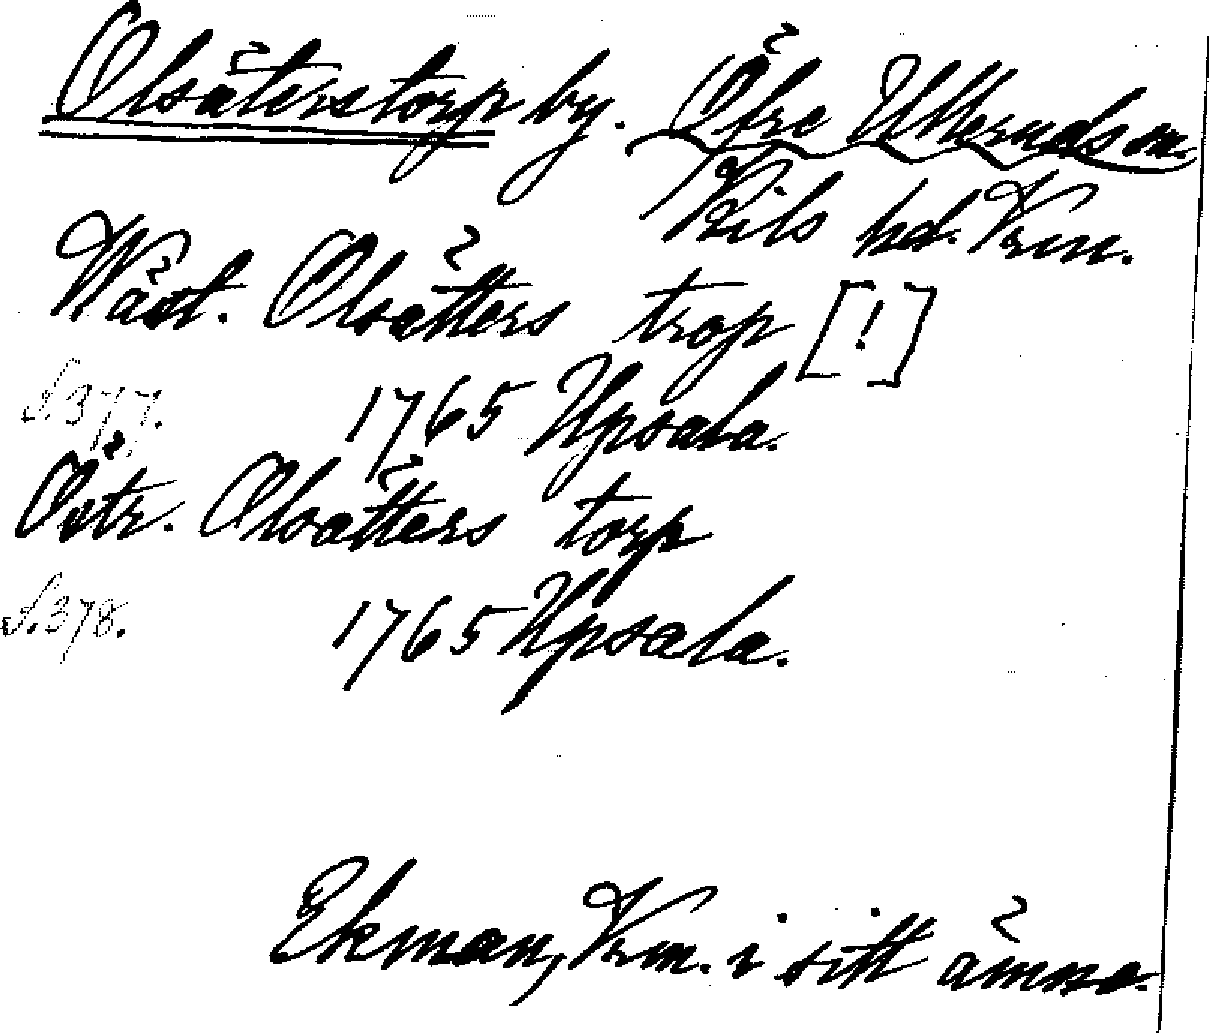 Olsäterstorp by. Öfre Ulleruds sn.
Kils hd. Vrm.
Wäst. Olsätters trop [!]
S. 377. 1765 Upsala.
Östr. Olsätters torp
S. 378. 1765 Upsala.
Ekman, Vrm. i sitt ämne.